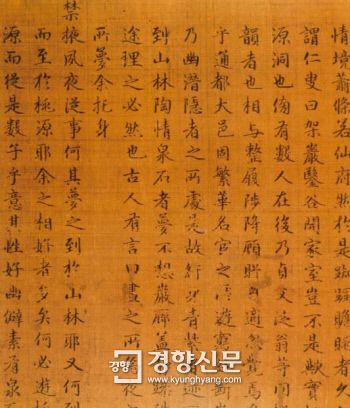 情境蕭條若仙府然於是踟躕瞻眺者久
謂仁叟曰架巖鑿谷開家室豈不是歟實
源洞也傍有數人在後乃貞父泛翁等同
韻者也相與整履陟降顧眄自適忽覺焉
乎通都大邑固繁華名宦之所遊
乃幽潛隱者之所處是故紆身青紫者迹
到山林陶情泉石者夢不想巖廊蓋靜躁
途理之必然也古人有言曰晝之所為夜之
所夢余托身
禁掖夙夜從事何其夢之到於山林耶又何到
而至於桃源耶余之相好者多矣何必遊桃
源而從是數子乎意其性好幽僻素有泉
경향
경향신문
www.kyunghyang.com